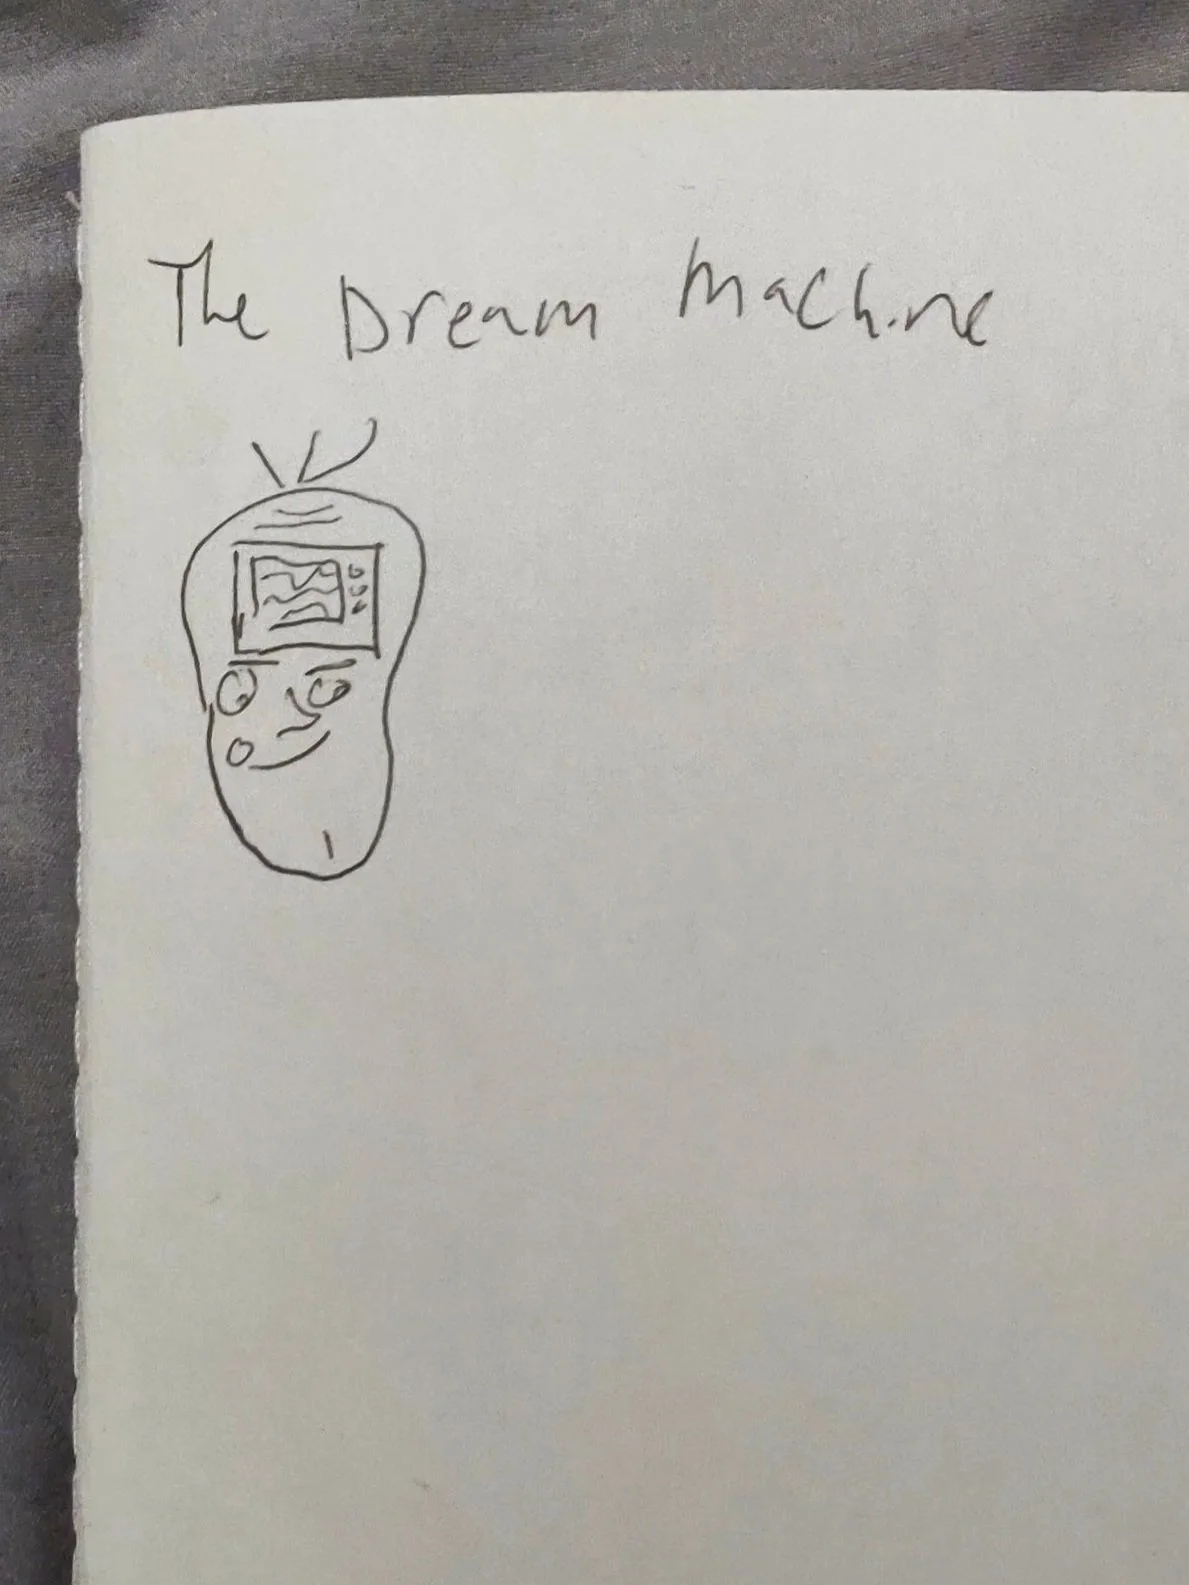 The Dream Machine